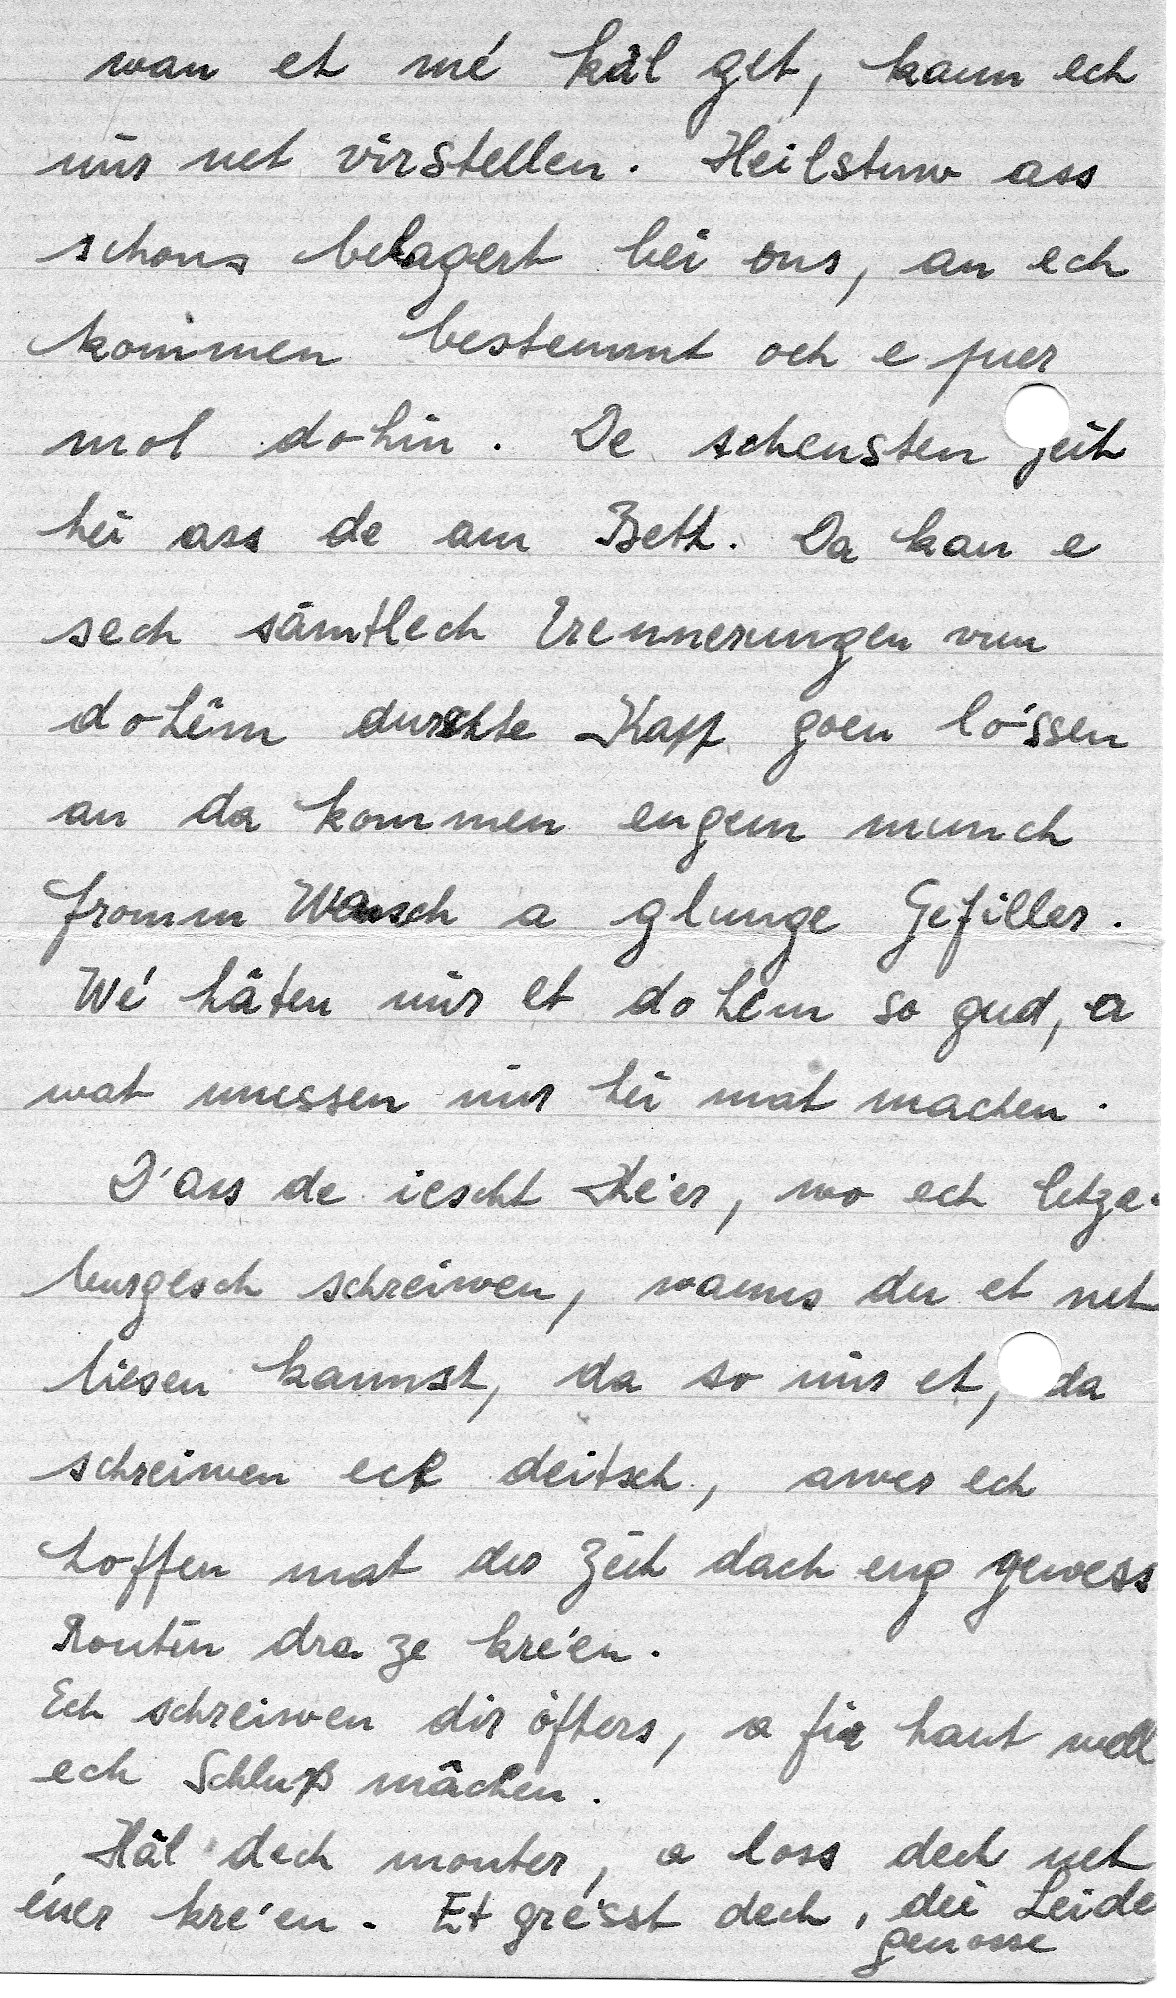 wan et mé käl get, kann ech
mir net virstellen. Heilstuw ass
schons belagert bei ons, an ech
kommen bestemmt och e puer
mol dohin. De schensten Zeit
hei ass de am Bett. Da kan e
sech sämtlech Erennerungen vun
dohêm durchte Kapp goen lóssen
an da kommen engem munch
fromm Wonsch a glunge Gefiller.
Wé häten mir et dohem so gud, a
wat messen mir hei mat machen.
D'ass de iescht Kéer, wo ech letze-
burgesch schreiwen, wanns du et net
liesen kannst, da so mir et, da
schreiwen ech deitsch, awer ech
hoffen mat der Zeit dach eng gewess
Routin dra ze kréen.
Ech schreiwen dir öfters, a fir haut well
ech Schluß mâchen.
Häl dech monter, a loss dech net
éner kré'en. Et grésst dech, dei Leide
genosse